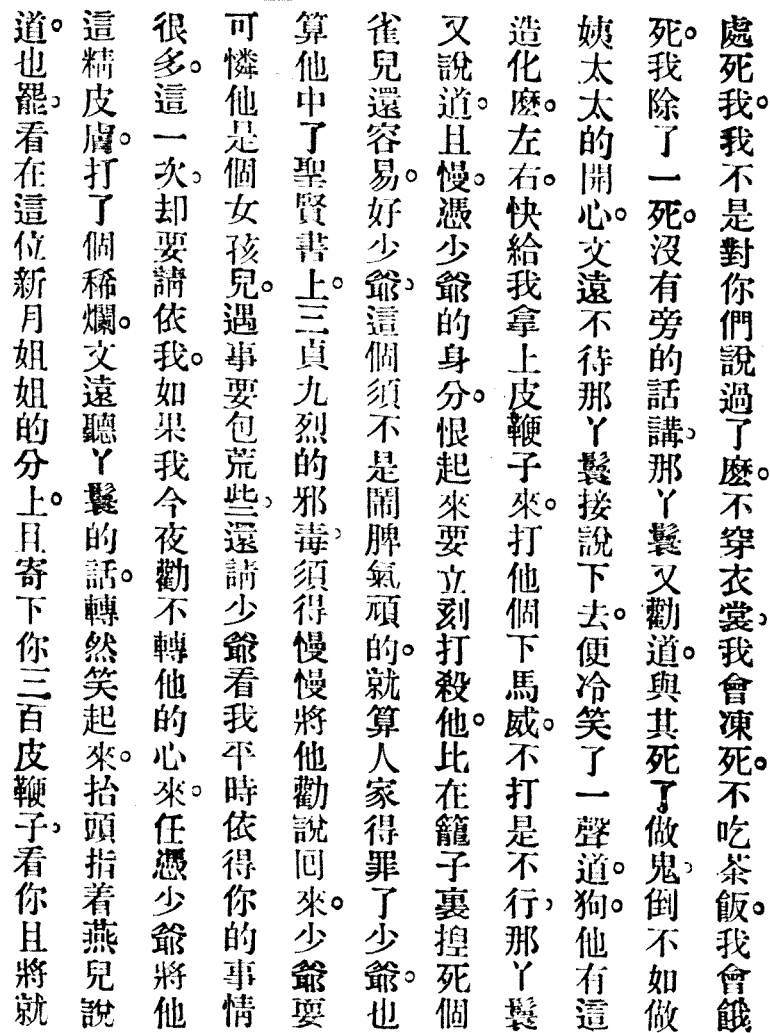 處死我。我不是對你們說過了麽。不穿衣裳，我會凍死。不吃茶飯。我會餓
死。我除了一死。沒有旁的話講，那丫鬟又勸道。與其死了。做鬼，倒不如做
姨太太的開心。文遠不待那丫鬟接說下去。便冷笑了一聲道。狗。他有這
造化麽。左右。快給我拿上皮鞭子來。打他個下馬威。不打是不行，那丫鬟
又說道。且慢。憑少爺的身分。恨起來要立刻打殺他。比在籠子裏揑死個
雀兒還容易。好少爺，這個須不是鬧脾氣頑的。就算人家得罪了少爺。也
算他中了聖賢書上。三貞九烈的邪毒，須得慢慢將他勸說回來。少爺要
可憐他是個女孩兒。遇事要包荒些，還請少爺看我平時依得你的事情
很多。這一次，却要請依我。如果我今夜勸不轉他的心來。任憑少爺將他
這精皮膚。打了個稀爛。文遠聽丫鬟的話。轉然笑起來。抬頭指着燕兒說
道。也罷，看在這位新月姐姐的分上。且寄下你三百皮鞭子，看你且將就